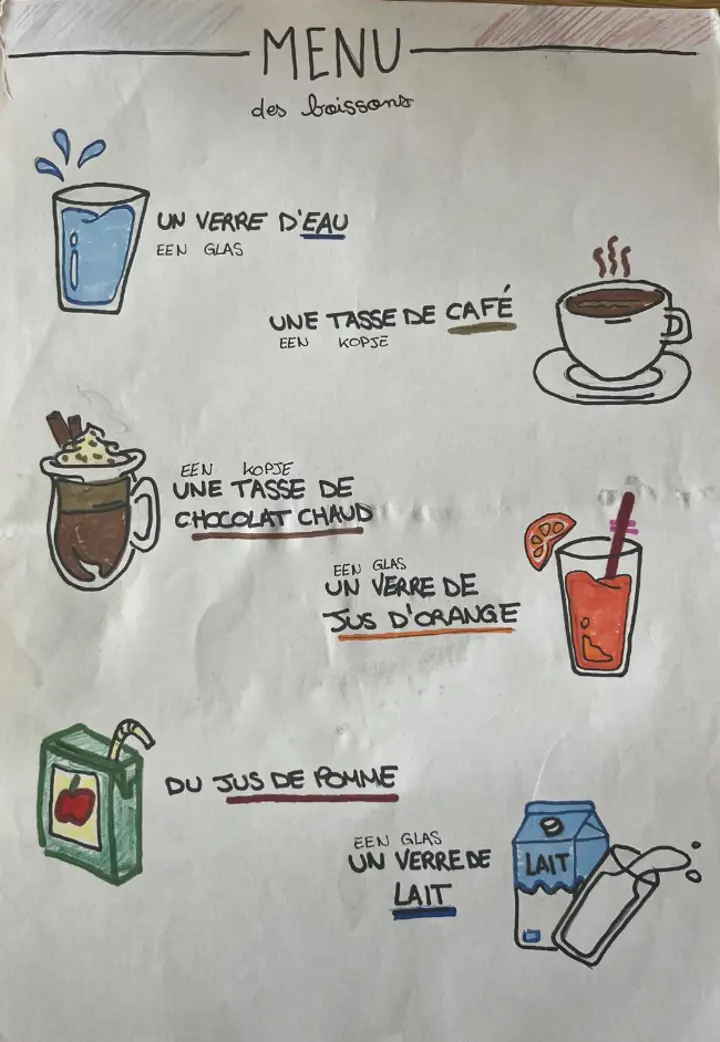 MENU
des boissons
UN VERRE D'EAU
EEN GLAS
UNE TASSE DE CAFÉ
EEN KOPJE
EEN KOPJE
UNE TASSE DE
CHOCOLAT CHAUD
EEN GLAS
UN VERRE DE
JUS D'ORANGE
DU JUS DE POMME
EEN GLAS
UN VERRE DE
LAIT
LAIT